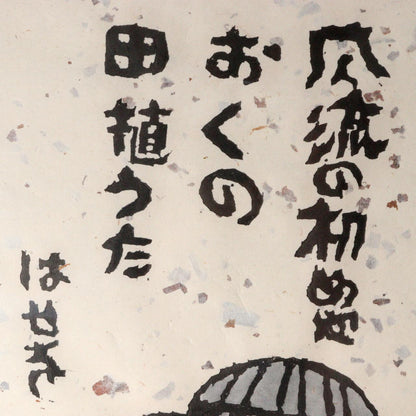 風流の初めや
おくの
田植うた
はせを